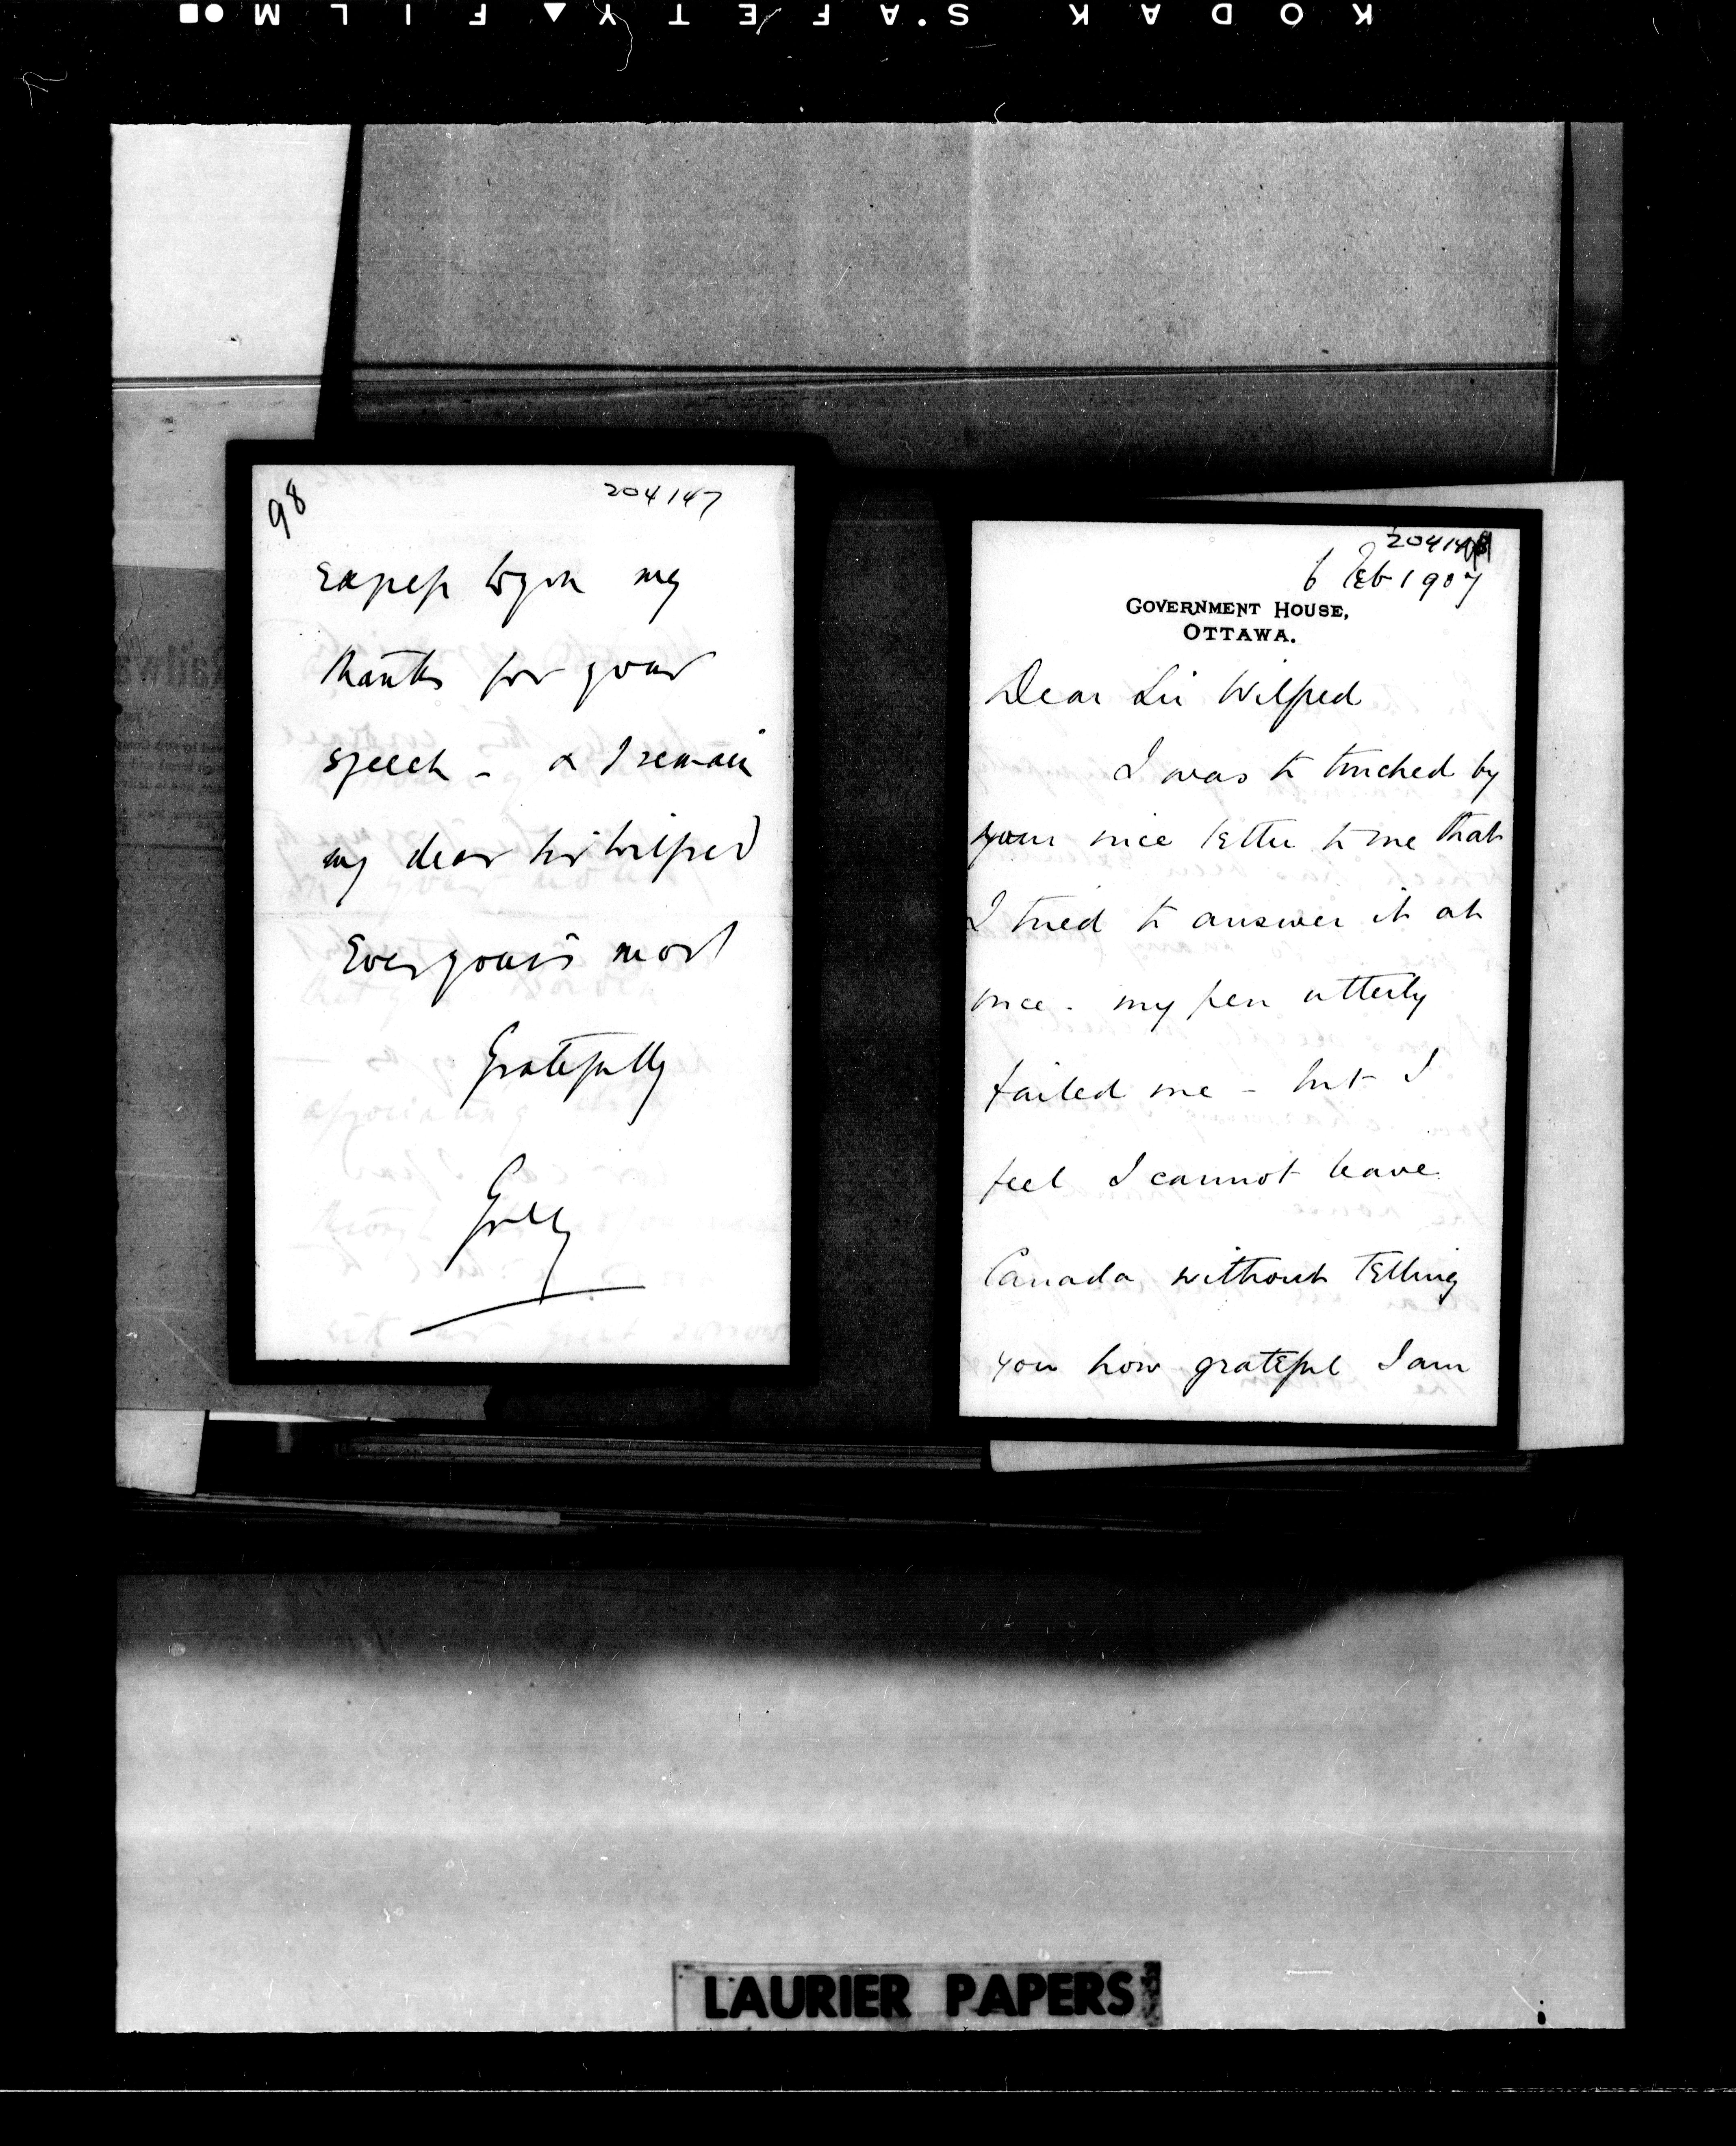 KODAK S·AFETY▲FILM■●
98
204147
Express to you my
thanks for your
speech - & I remain
my dear Sir Wilfred
Ever yours most
Gratefully
Grey
6 Feb 1907
GOVERNMENT HOUSE,
OTTAWA.
Dear Sir Wilfred
I was so touched by
your nice letter to me that
I tried to answer it at
once. my pen utterly
failed me - but I
feel I cannot leave
Canada without telling
you how grateful I am
LAURIER PAPERS